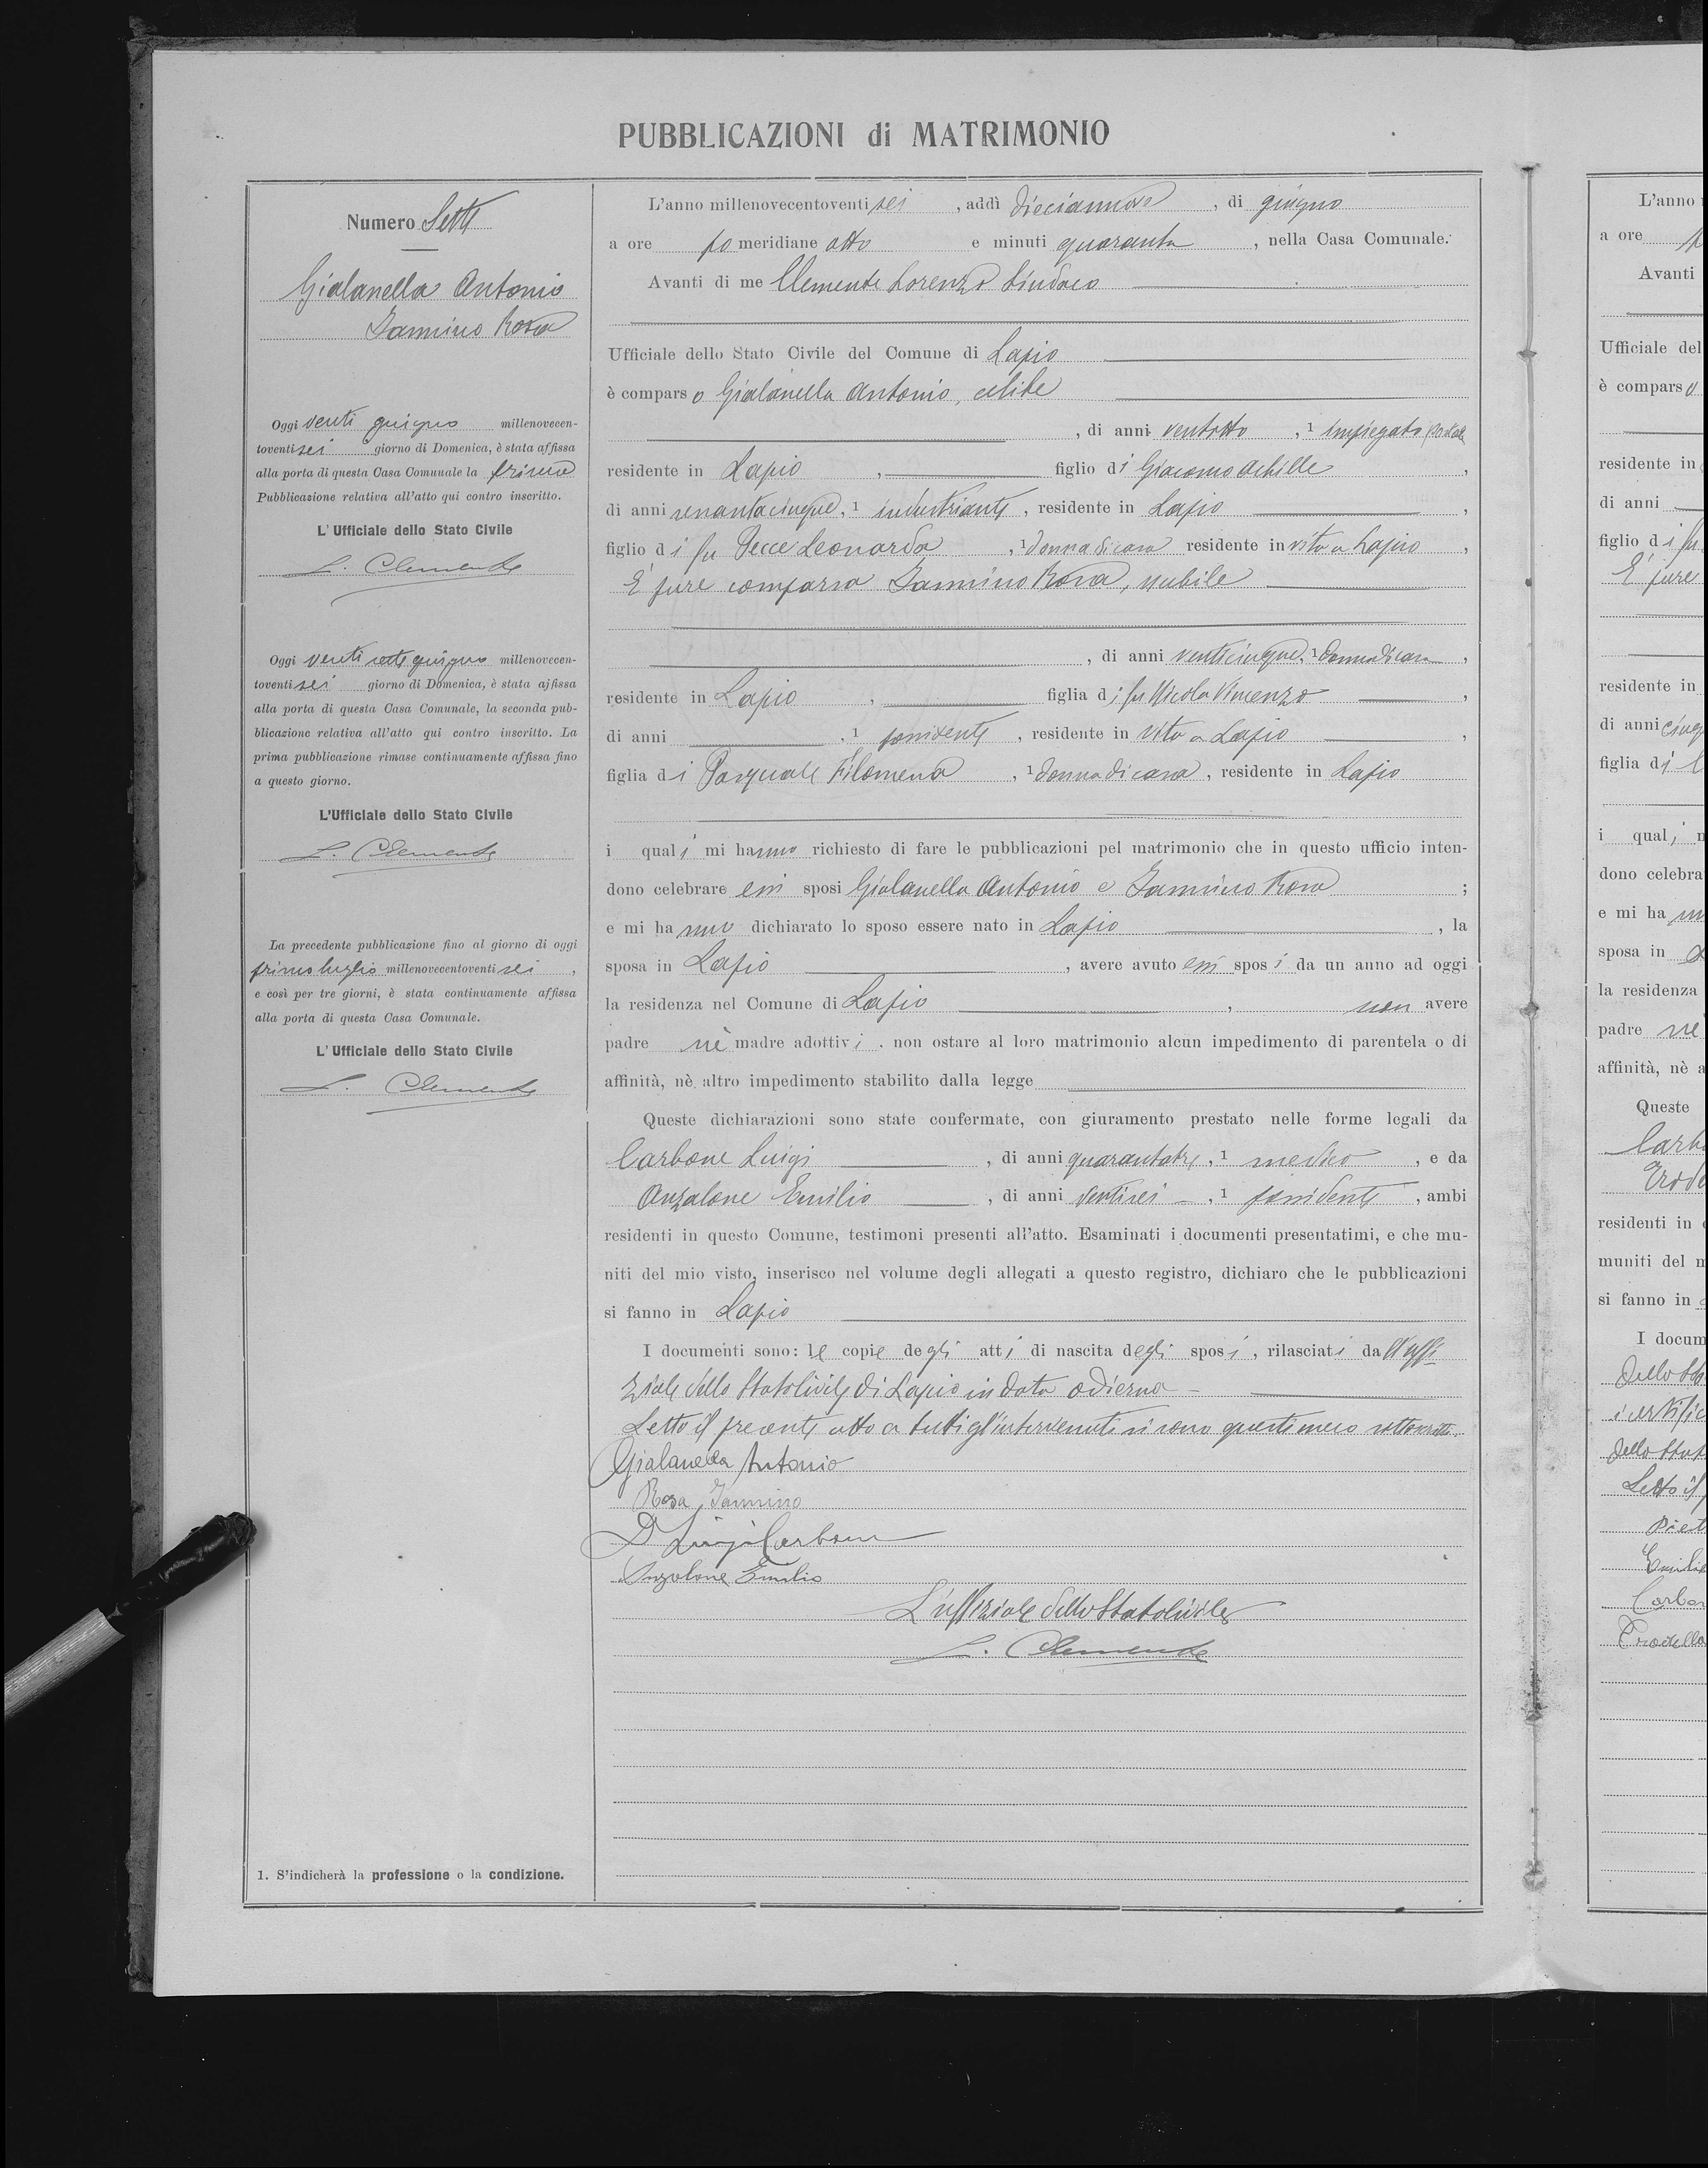 PUBBLICAZIONI di MATRIMONIO
Numero Sette
Gialanella Antonio
Iannino Rosa
Oggi venti giugno millenovecen-
toventi sei giorno di Domenica, è stata affissa
alla porta di questa Casa Comunale la prima
Pubblicazione relativa all'atto qui contro inscritto.
L'Ufficiale dello Stato Civile
L. Clemente
Oggi venti sette giugno millenovecen-
toventi sei giorno di Domenica, è stata affissa
alla porta di questa Casa Comunale, la seconda pub-
blicazione relativa all'atto qui contro inscritto. La
prima pubblicazione rimase continuamente affissa fino
a questo giorno.
L'Ufficiale dello Stato Civile
L. Clemente
La precedente pubblicazione fino al giorno di oggi
primo luglio millenovecentoventi sei ,
e così per tre giorni, è stata continuamente affissa
alla porta di questa Casa Comunale.
L'Ufficiale dello Stato Civile
L. Clemente
1. S'indicherà la professione o la condizione.
L'anno millenovecentoventi sei , addì diciannove , di giugno
a ore po meridiane otto e minuti quaranta , nella Casa Comunale.
Avanti di me Clemente Lorenzo Sindaco
Ufficiale dello Stato Civile del Comune di Lapio
è compars o Gialanella Antonio, celibe
, di anni ventotto , 1 impiegato postale
residente in Lapio , figlio di Giacomo Achille ,
di anni sessantacinque, 1 industriante , residente in Lapio ,
figlio d i fu Tecce Leonarda , 1 donna di casa residente in vita a Lapio ,
È pure comparsa Iannino Rosa, nubile
, di anni venticinque, 1 donna di casa ,
residente in Lapio , figlia d i fu Nicola Vincenzo ,
di anni , 1 possidente , residente in vita a Lapio ,
figlia d i Pasquale Filomena , 1 donna di casa , residente in Lapio
i quali mi hanno richiesto di fare le pubblicazioni pel matrimonio che in questo ufficio inten-
dono celebrare essi sposi Gialanella Antonio e Iannino Rosa ;
e mi ha nno dichiarato lo sposo essere nato in Lapio , la
sposa in Lapio , avere avuto essi spos i da un anno ad oggi
la residenza nel Comune di Lapio , non avere
padre nè madre adottivi , non ostare al loro matrimonio alcun impedimento di parentela o di
affinità, nè altro impedimento stabilito dalla legge
Queste dichiarazioni sono state confermate, con giuramento prestato nelle forme legali da
Carbone Luigi , di anni quarantatre , 1 medico , e da
Anzalone Emilio , di anni ventisei , 1 possidente , ambi
residenti in questo Comune, testimoni presenti all'atto. Esaminati i documenti presentatimi, e che mu-
niti del mio visto, inserisco nel volume degli allegati a questo registro, dichiaro che le pubblicazioni
si fanno in Lapio
I documenti sono: le copie degli atti di nascita degli sposi , rilasciati da ll'uffi
ziale dello Stato Civile di Lapio in data odierna
Letto il presente atto a tutti gl'intervenuti si sono questi meco sottoscritti.
Gialanella Antonio
Rosa Iannino
D Luigi Carbone
Anzalone Emilio
L'uffiziale dello Stato Civile
L. Clemente
L'anno
a ore
Avanti
Ufficiale del
è compars o
residente in
di anni
figlio d i fu
È pure
residente in
di anni
figlia di
i quali
dono celebra
e mi ha
sposa in
la residenza
padre nè
affinità, nè a
Queste
residenti in
muniti del
si fanno in
I docum
Letto il